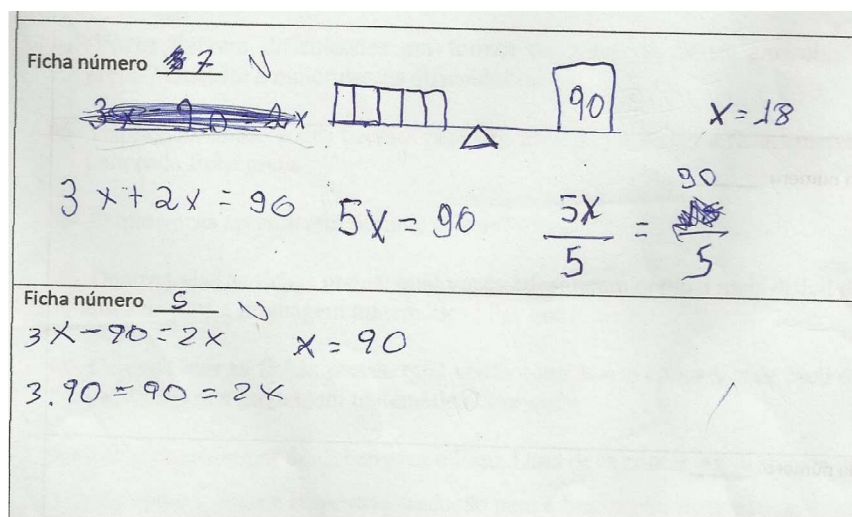 Ficha número 7
90 x = 18
3x + 2x = 90 5x = 90 5x/5 = 90/5
Ficha número 5
3x - 90 = 2x x = 90
3.90 = 90 = 2x